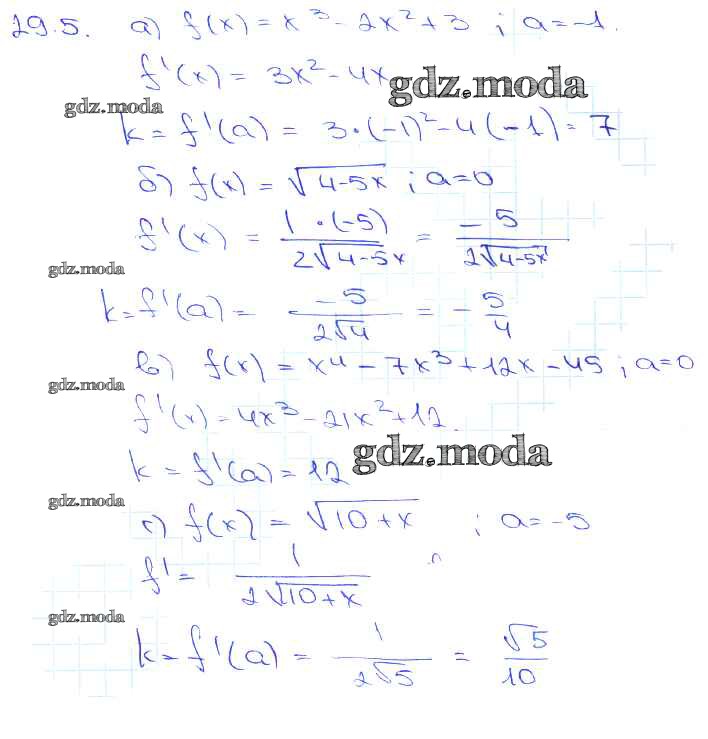 29.5. а) f(x) = x³ - 2x² + 3 ; a = -1.
f'(x) = 3x² - 4x
gdz.moda
gdz.moda
k = f'(a) = 3·(-1)² - 4(-1) = 7
б) f(x) = √(4-5x) ; a=0
f'(x) = 1·(-5)/(2√(4-5x)) = -5/(2√(4-5x))
gdz.moda
k = f'(a) = -5/(2√4) = -5/4
в) f(x) = x⁴ - 7x³ + 12x - 45 ; a=0
gdz.moda
f'(x) = 4x³ - 21x² + 12.
gdz.moda
k = f'(a) = 12
gdz.moda
г) f(x) = √(10+x) ; a = -5
f' = 1/(2√(10+x))
gdz.moda
k = f'(a) = 1/(2√5) = √5/10